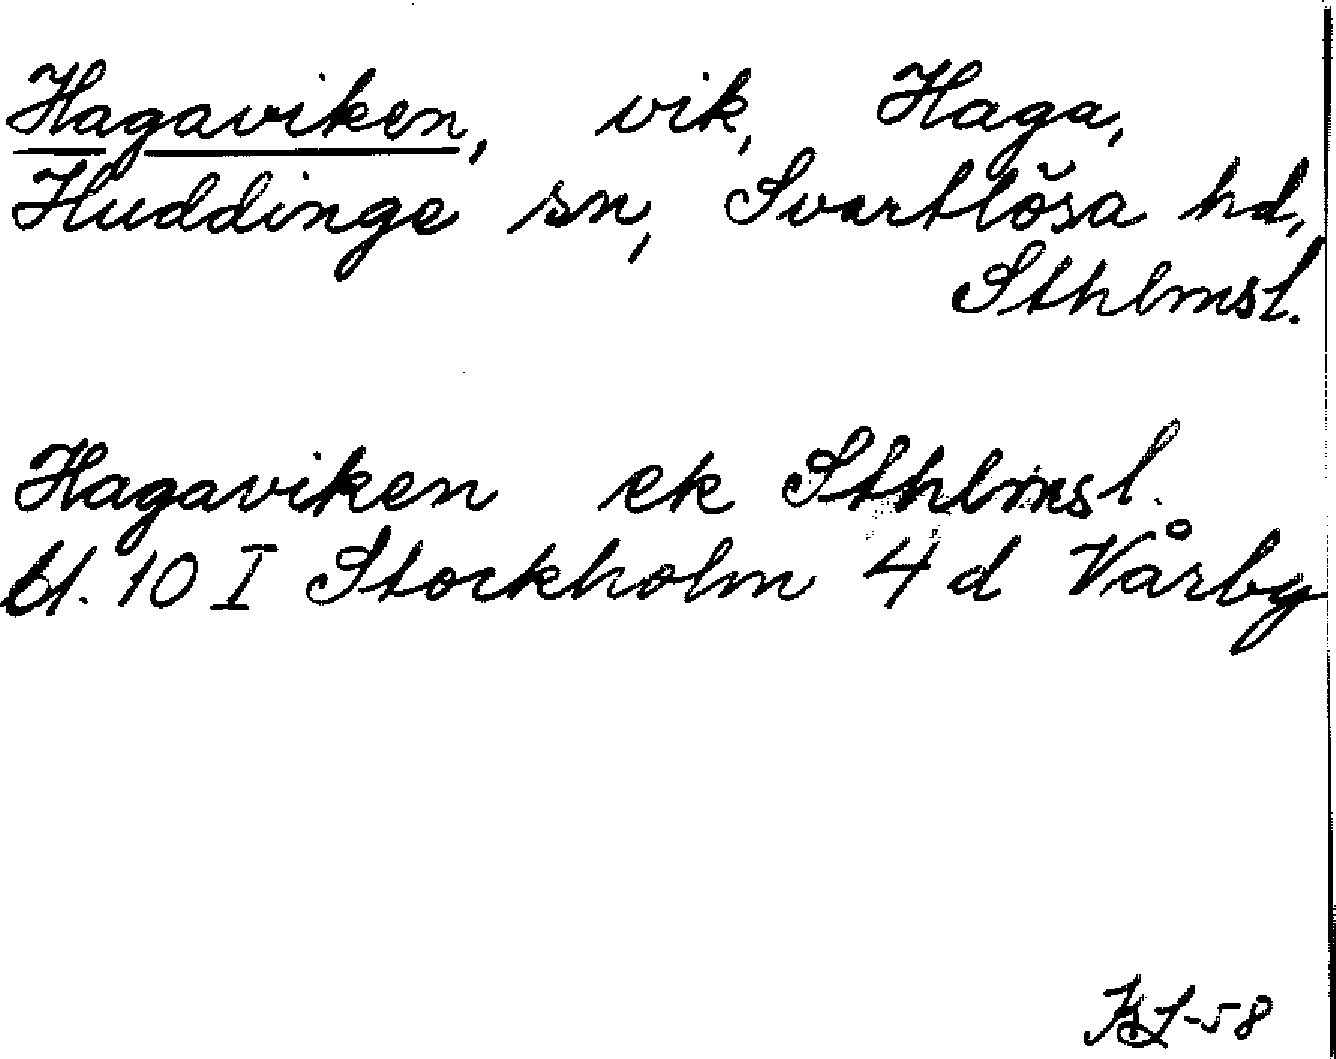 Hagaviken, vik, Haga,
Huddinge sn, Svartlösa hd,
Sthlmsl.
Hagaviken ek Sthlmsl.
bl. 10 I Stockholm 4 d Vårby
KL-58